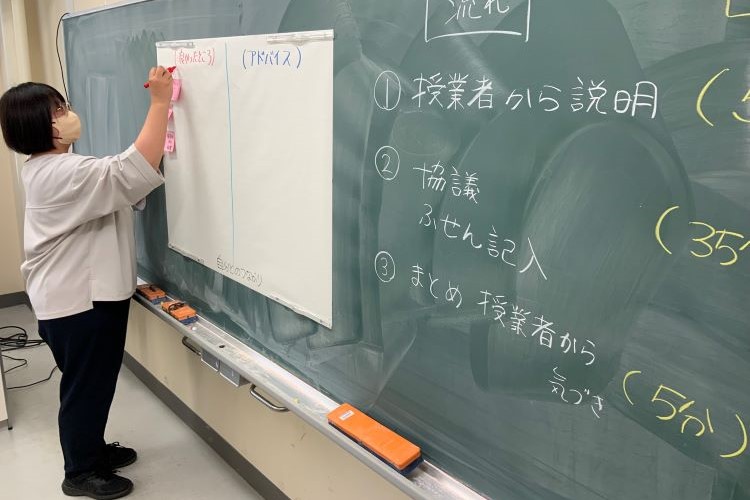 流れ
(良かったところ)
(アドバイス)
自分とのつながり
① 授業者から説明
(5
② 協議
ふせん記入
(35分
③ まとめ 授業者から
気づき
(5分)